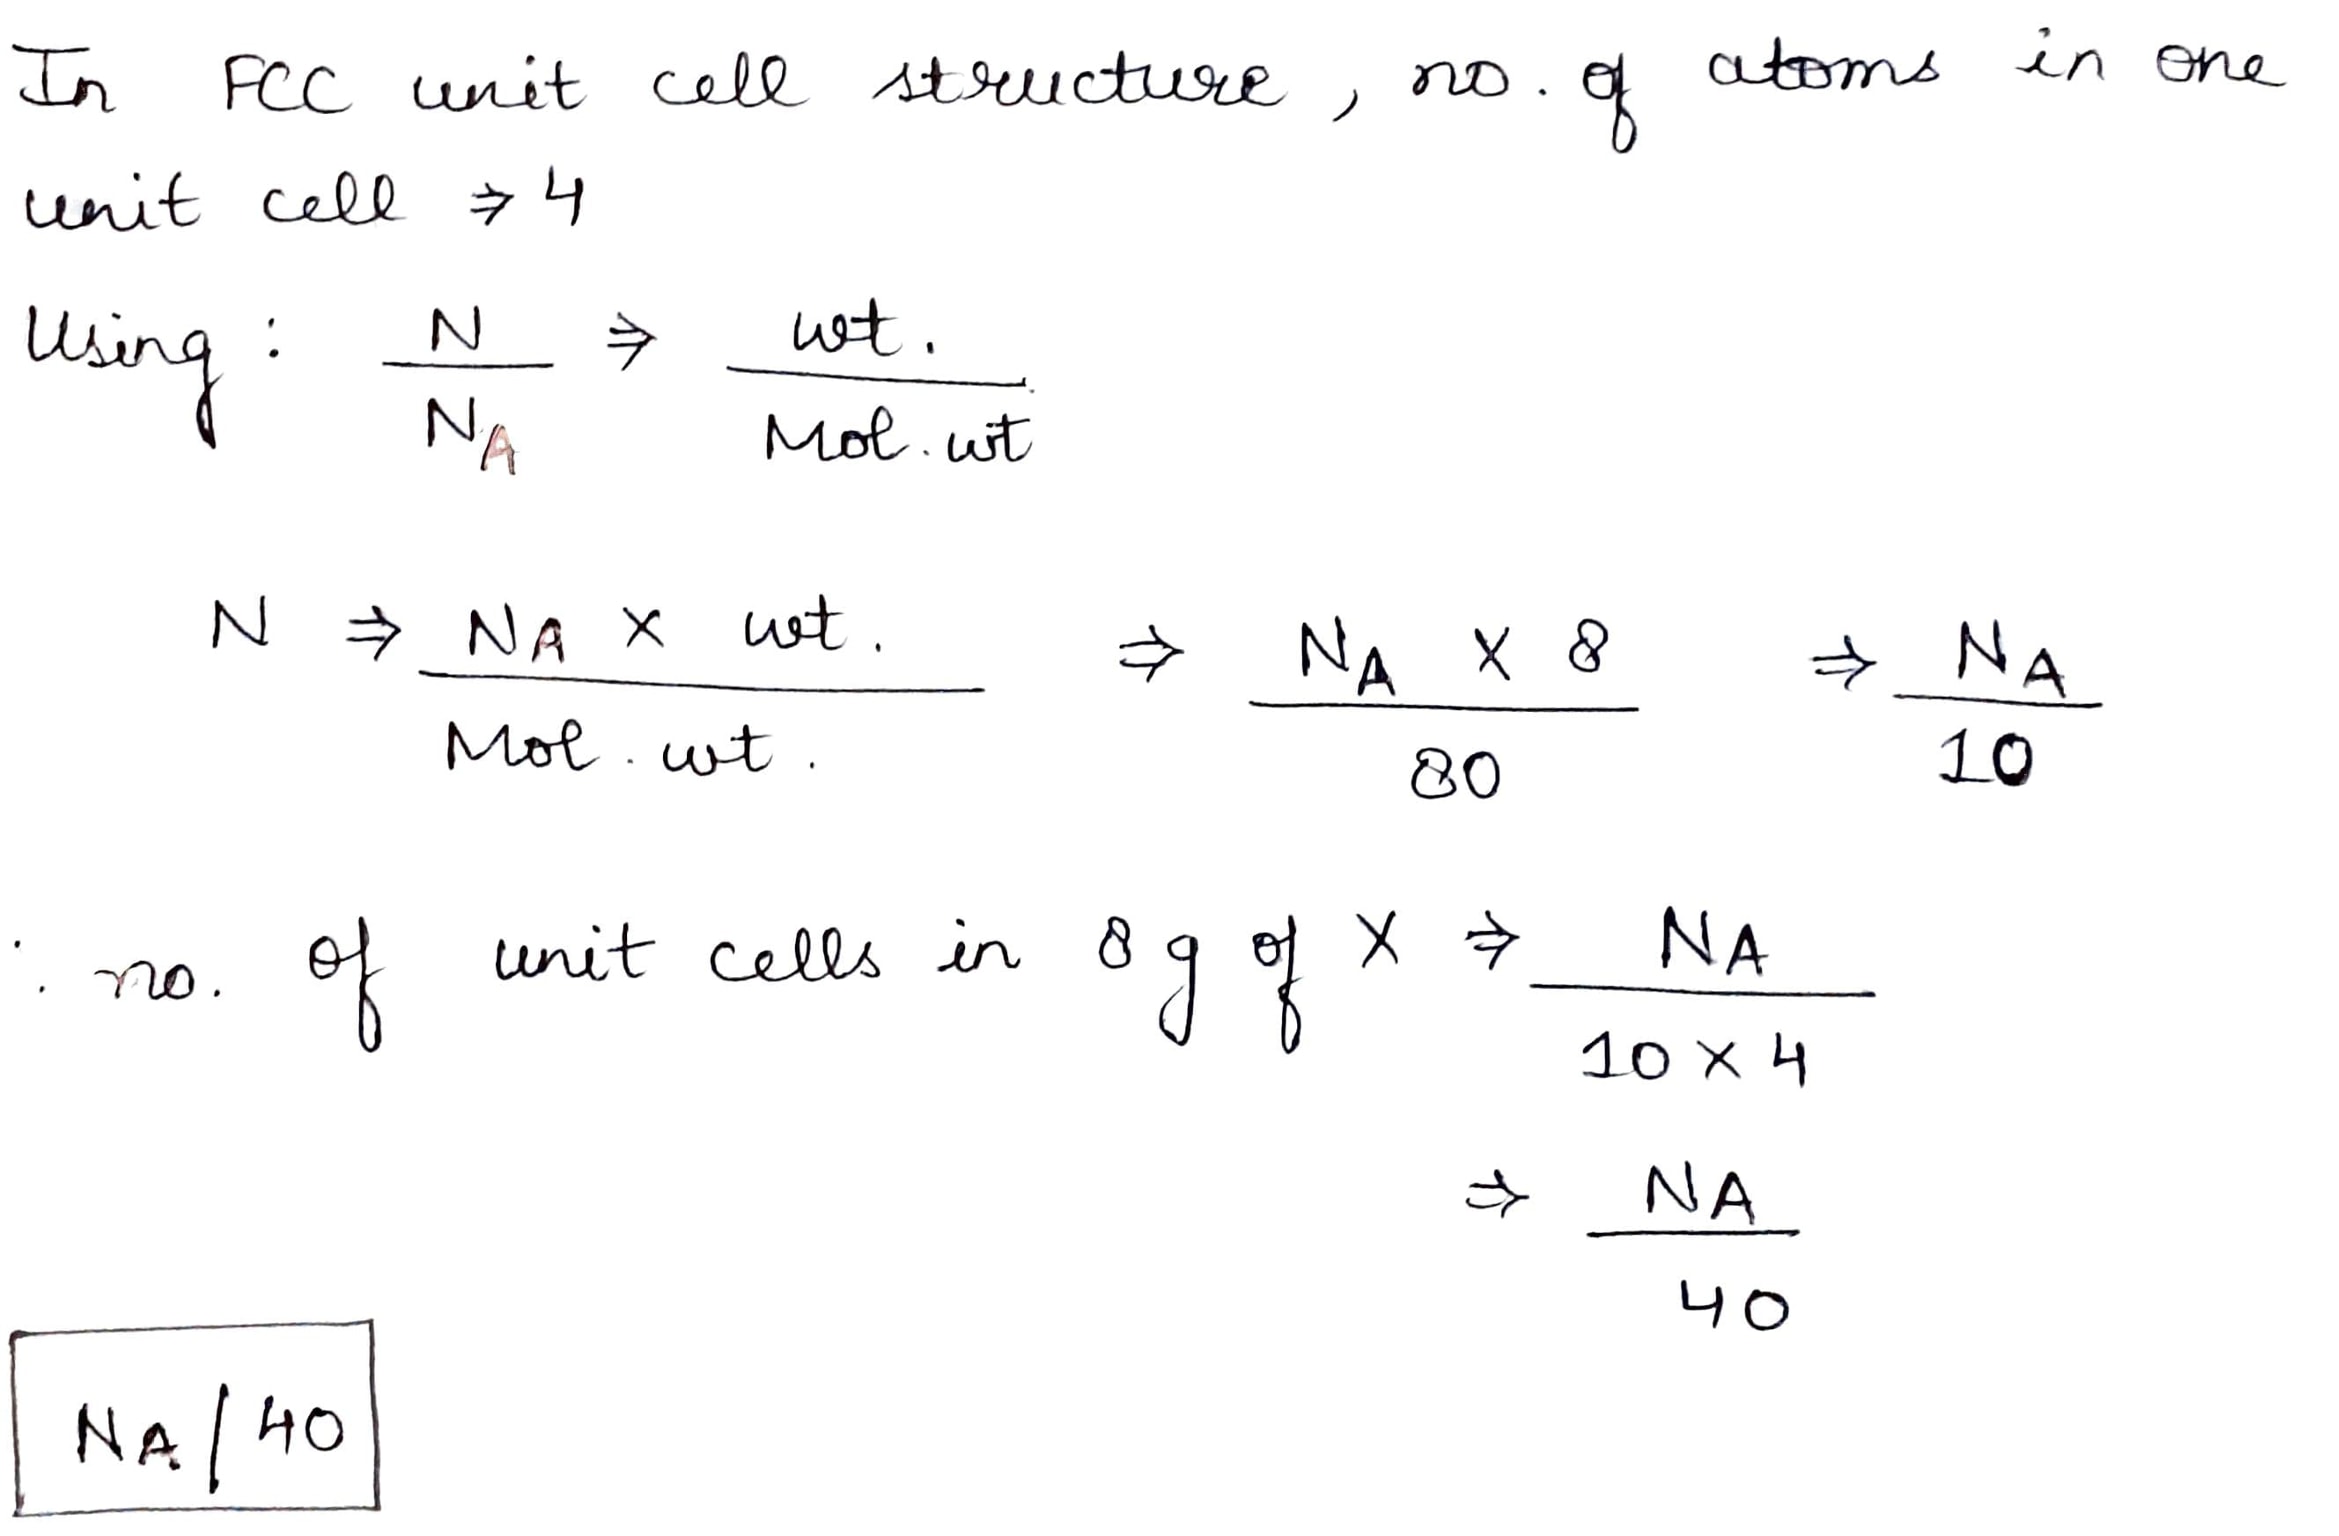 In FCC unit cell structure, no. of atoms in one
unit cell ⇒ 4
Using : N/NA ⇒ wt./Mol. wt
N ⇒ NA × wt./Mol. wt. ⇒ NA × 8/80 ⇒ NA/10
∴ no. of unit cells in 8 g of X ⇒ NA/10 × 4
⇒ NA/40
NA/40